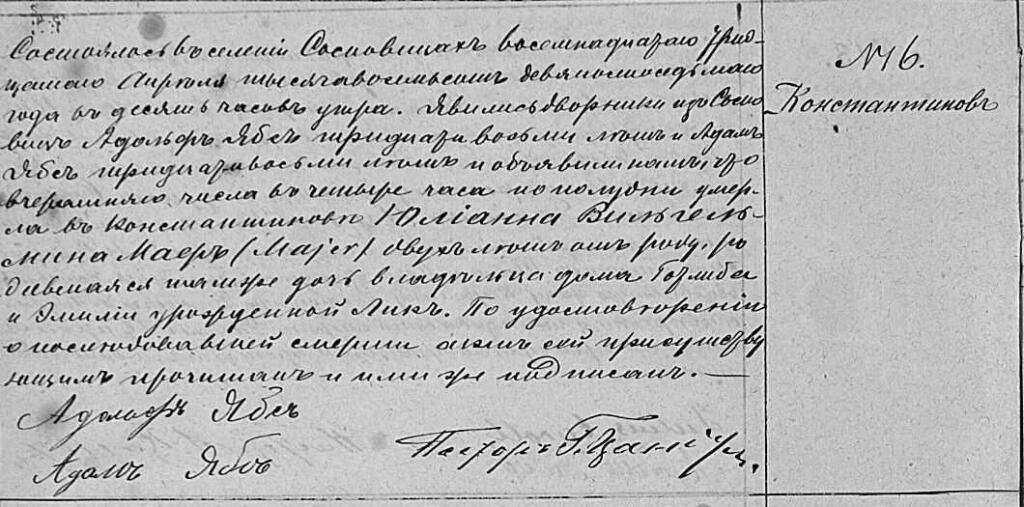 Состоялось въ селеніи Сосновицахъ восемнадцатаго /трид-
цатаго Апрѣля тысяча восемьсотъ девяносто седьмаго
года въ десять часовъ утра. Явились дворники изъ Сосно
вицъ Адольфъ Ябсъ тридцати восьми лѣтъ и Адамъ
Ябсъ тридцати восьми лѣтъ и объявили намъ, что
вчерашняго числа въ четыре часа по полудни умер-
ла въ Константиновѣ Юліанна Вильгель-
мина Маеръ (Majer) двухъ лѣтъ отъ роду, ро
дившаяся тамже дочь владѣльца дома Готлиба
и Эмиліи урожденной Ликъ. По удостовѣреніи
о послѣдовавшей смерти актъ сей присутству
ющимъ прочитанъ и ими же подписанъ. —
Адольфъ Ябсъ
Адамъ Ябсъ
Пасторъ
N16.
Константиновъ